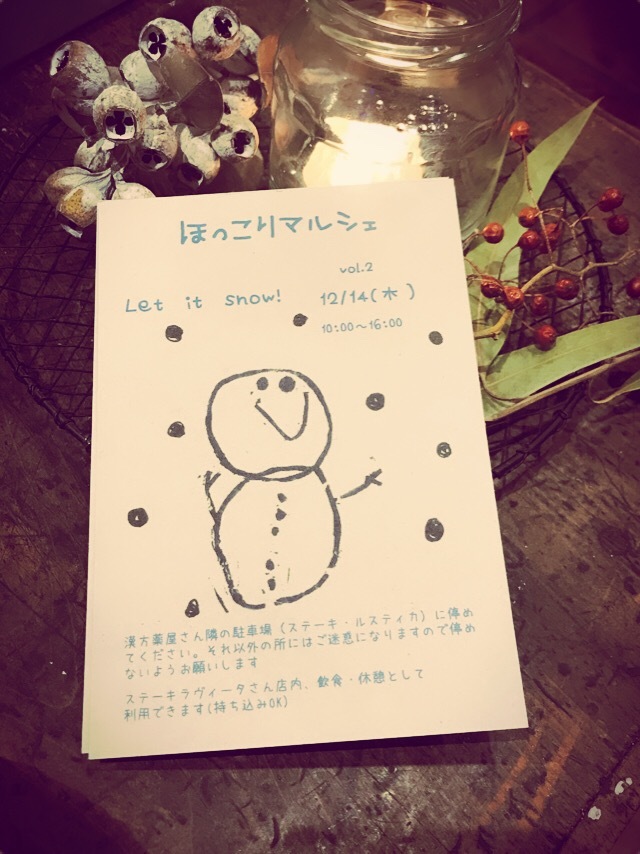 ほっこりマルシェ
vol.2
Let it snow! 12/14(木)
10:00〜16:00
漢方薬屋さん隣の駐車場（ステーキ・ルスティカ）に停め
てください。それ以外の所にはご迷惑になりますので停め
ないようお願いします
ステーキラヴィータさん店内、飲食・休憩として
利用できます(持ち込みOK)